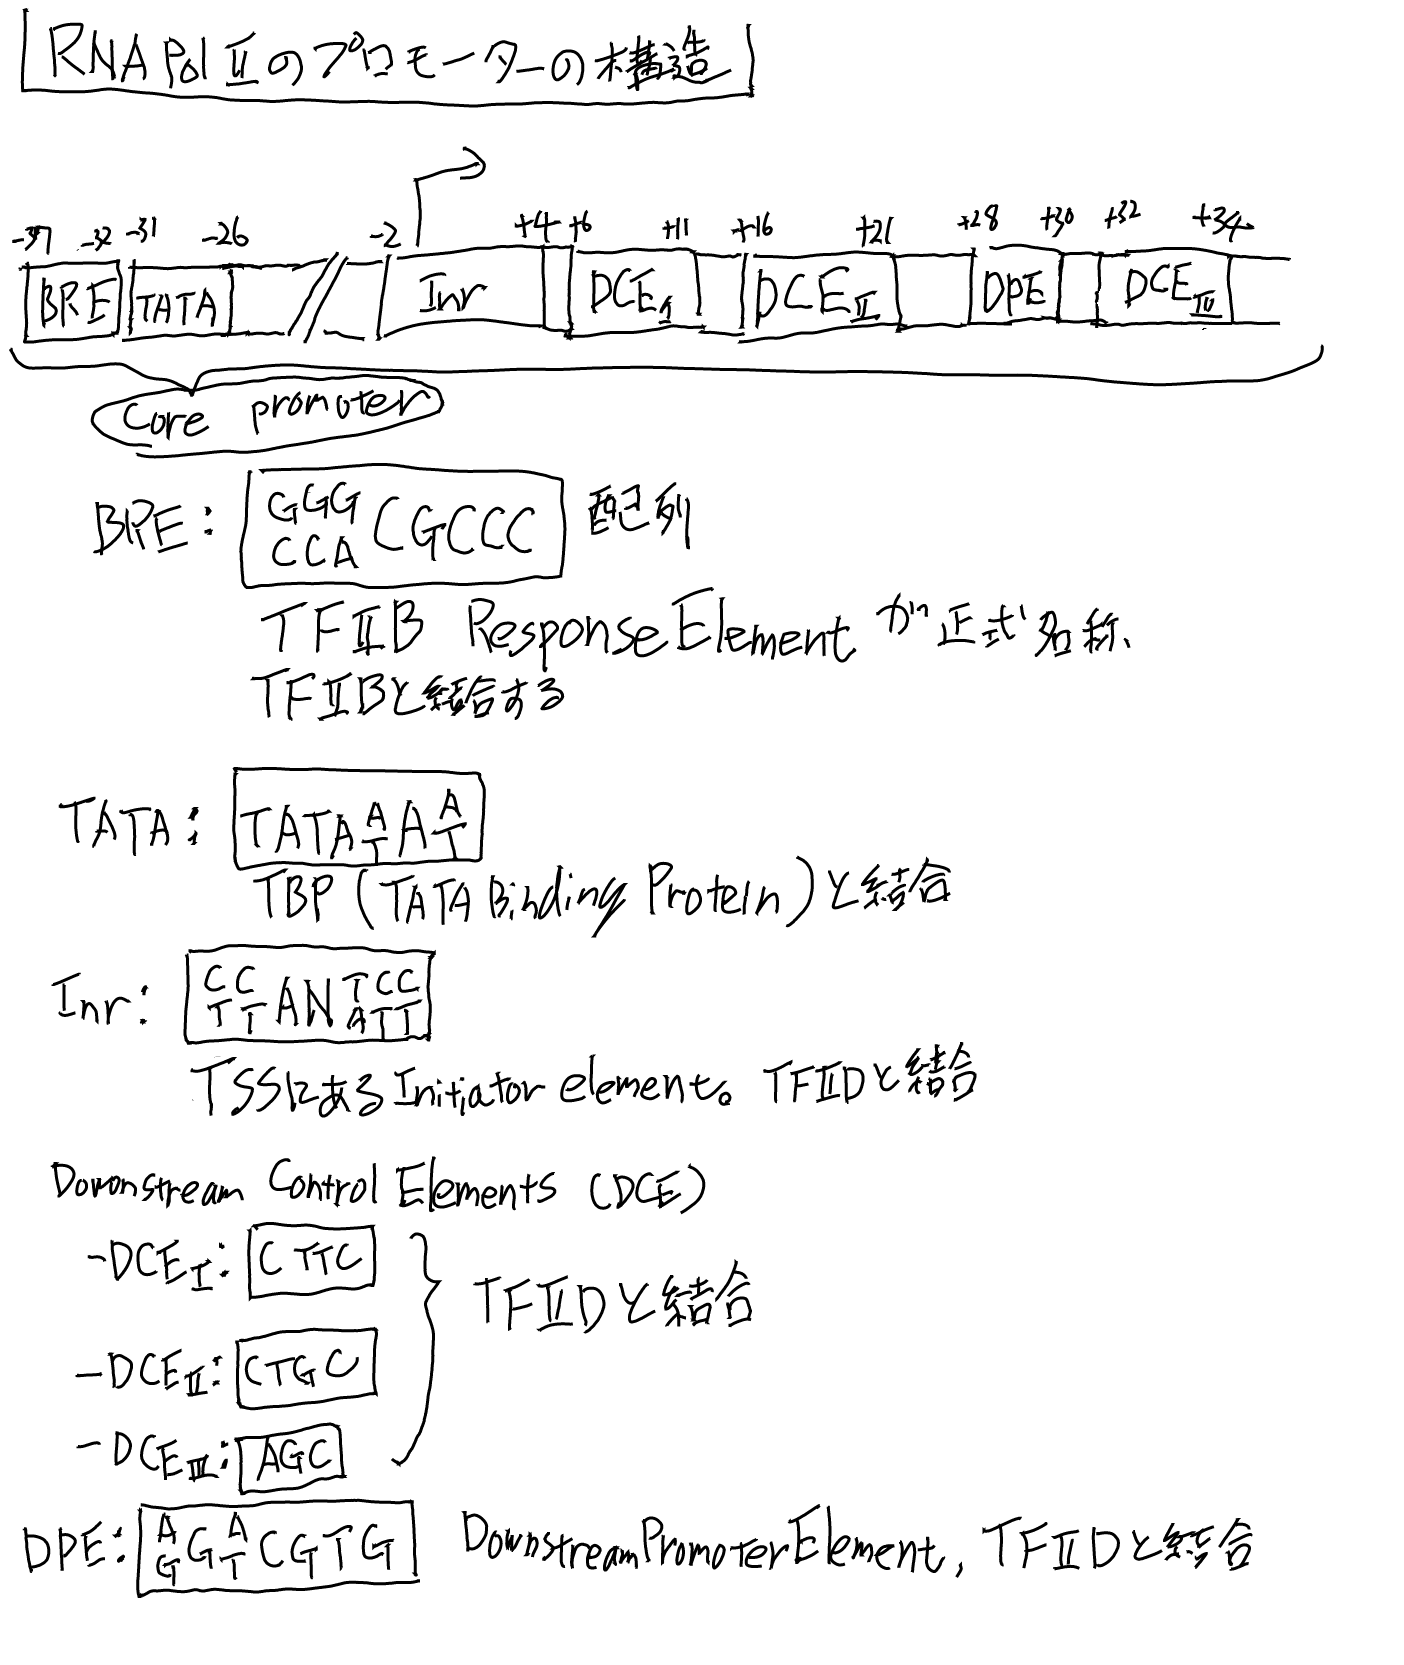 RNA Pol Ⅱのプロモーターの構造
-37 -32 -31 -26 -2 +4 +6 +11 +16 +21 +28 +30 +32 +34
BRE TATA Inr DCEⅠ DCEⅡ DPE DCEⅢ
Core promoter
BRE: GGG CGCCC 配列
CCA
TFⅡB Response Element が正式名称、
TFⅡBと結合する
TATA: TATA A A A
T T
TBP (TATA Binding Protein)と結合
Inr: C C AN T C C
T T A T T
TSSにある Initiator element。TFⅡDと結合
Downstream Control Elements (DCE)
-DCEⅠ: CTTC
TFⅡDと結合
-DCEⅡ: CTGC
-DCEⅢ: AGC
DPE: A G A CGTG Downstream Promoter Element, TFⅡDと結合
G T